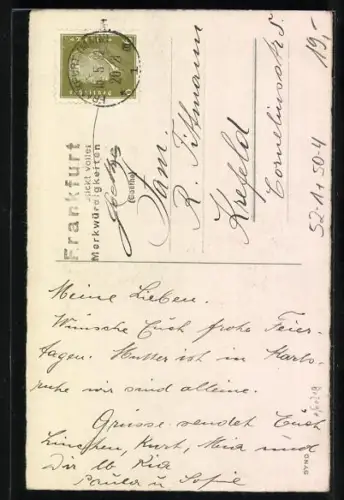 Frankfurt
steckt voller
Merkwürdigkeiten
(Goethe)
Fam.
R. Tillmann
Krefeld
Corneliusstr 5.
19,-
52.11 50-4
Meine Lieben.
Wünsche Euch frohe Feier-
tagen. Mutter ist in Karls-
ruhe wir sind alleine.
Grüsse sendet Euch
Linchen, Kurt, Mia und
Dir lb Ria
Paula u Sofie